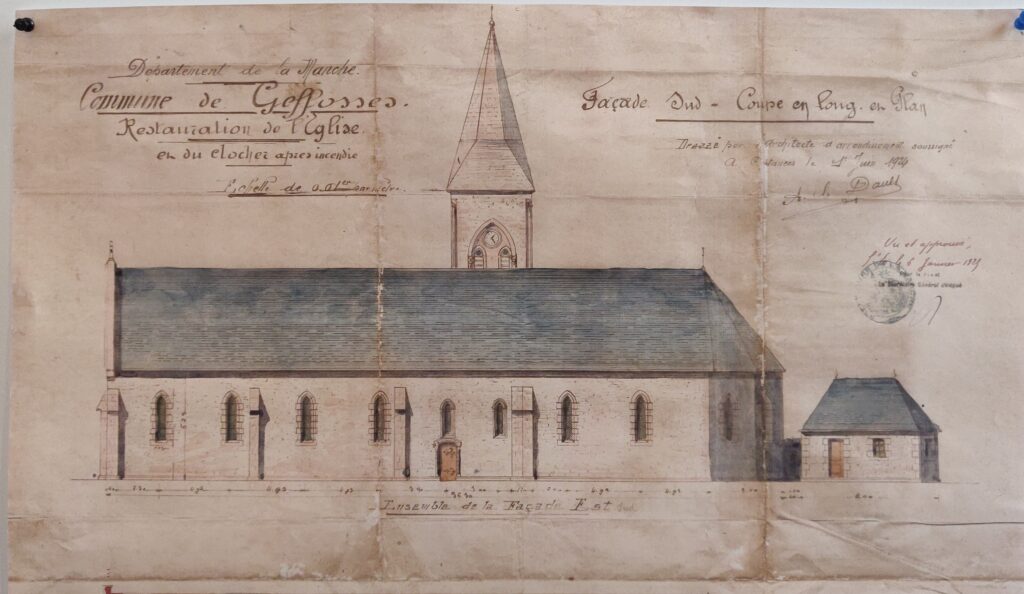 Département de la Manche.
Commune de Geffosses.
Restauration de l'Église.
et du clocher après incendie
Echelle de 0.01 cer par mètre.
Façade Sud - Coupe en long. et Plan
Dressé par l'Architecte d'arrondissement soussigné
A Coutances le 1er Juin 1924
Arch. Dault
Vu et approuvé,
St Lô le 6 Janvier 1925
Pour le Préfet
Le Secrétaire Général délégué
Ensemble de la Façade Est Sud